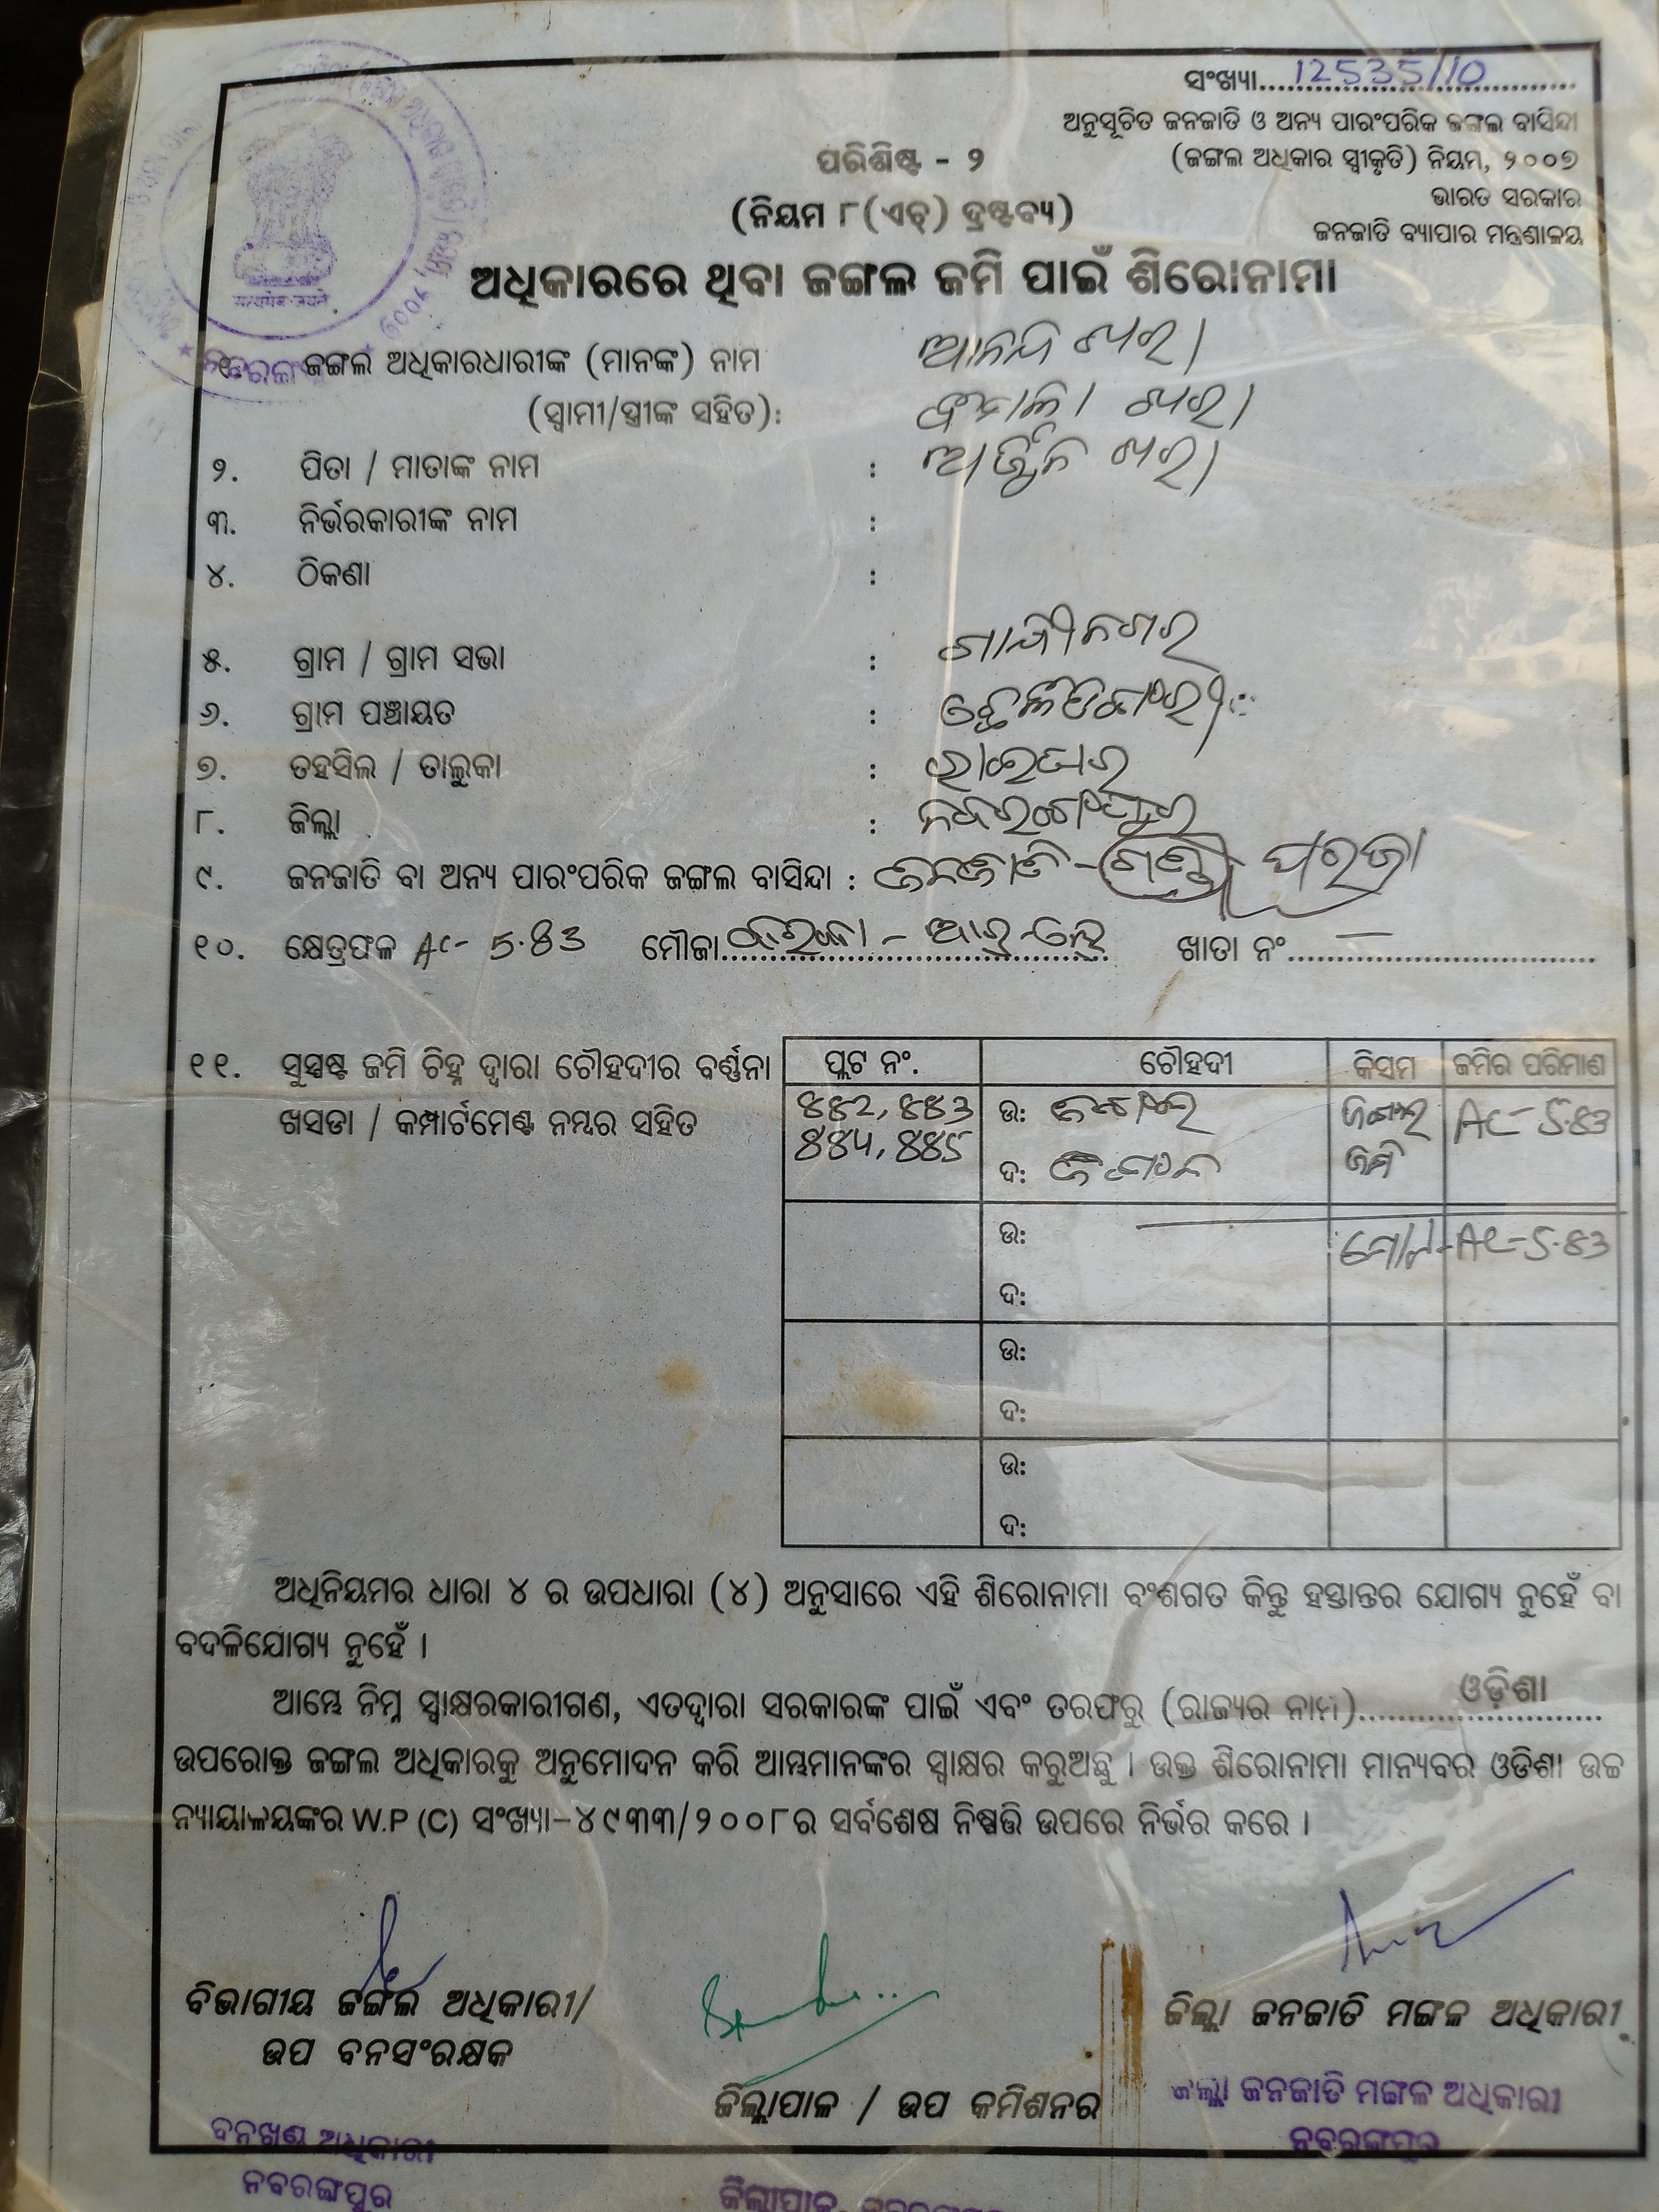 ସଂଖ୍ୟା....12535/10....
ଅନୁସୂଚିତ ଜନଜାତି ଓ ଅନ୍ୟ ପାରଂପରିକ ଜଙ୍ଗଲ ବାସିନ୍ଦା
(ଜଙ୍ଗଲ ଅଧିକାର ସ୍ୱୀକୃତି) ନିୟମ, ୨୦୦୭
ଭାରତ ସରକାର
ଜନଜାତି ବ୍ୟାପାର ମନ୍ତ୍ରଣାଳୟ
ପରିଶିଷ୍ଟ - ୨
(ନିୟମ ୮(ଏଚ୍) ଦ୍ରଷ୍ଟବ୍ୟ)
ଅଧିକାରରେ ଥିବା ଜଙ୍ଗଲ ଜମି ପାଇଁ ଶିରୋନାମା
ଜଙ୍ଗଲ ଅଧିକାରଧାରୀଙ୍କ (ମାନଙ୍କ) ନାମ
(ସ୍ୱାମୀ/ସ୍ତ୍ରୀଙ୍କ ସହିତ):
୨. ପିତା / ମାତାଙ୍କ ନାମ :
୩. ନିର୍ଭରକାରୀଙ୍କ ନାମ :
୪. ଠିକଣା :
୫. ଗ୍ରାମ / ଗ୍ରାମ ସଭା : ଗାନ୍ଧୀନଗର
୬. ଗ୍ରାମ ପଞ୍ଚାୟତ :
୭. ତହସିଲ / ତାଲୁକା : ରାଇଘର
୮. ଜିଲ୍ଲା : ନବରଙ୍ଗପୁର
୯. ଜନଜାତି ବା ଅନ୍ୟ ପାରଂପରିକ ଜଙ୍ଗଲ ବାସିନ୍ଦା : ଜନଜାତି - ଗଣ୍ଡ ପରଜା
୧୦. କ୍ଷେତ୍ରଫଳ Ac- 5.83 ମୌଜା........ ଖାତା ନଂ....—....
୧୧. ସୁସ୍ପଷ୍ଟ ଜମି ଚିହ୍ନ ଦ୍ୱାରା ଚୌହଦୀର ବର୍ଣ୍ଣନା
ଖସଡା / କମ୍ପାର୍ଟମେଣ୍ଟ ନମ୍ବର ସହିତ
ପ୍ଲଟ ନଂ. ଚୌହଦୀ କିସମ ଜମିର ପରିମାଣ
ଉ: ଜଙ୍ଗଲ ଜଙ୍ଗଲ Ac- 5.83
ଦ: ଜମି
ଉ: ମୋଟ - Ac- 5.83
ଦ:
ଉ:
ଦ:
ଉ:
ଦ:
ଅଧିନିୟମର ଧାରା ୪ ର ଉପଧାରା (୪) ଅନୁସାରେ ଏହି ଶିରୋନାମା ବଂଶଗତ କିନ୍ତୁ ହସ୍ତାନ୍ତର ଯୋଗ୍ୟ ନୁହେଁ ବା
ବଦଳିଯୋଗ୍ୟ ନୁହେଁ ।
ଆମ୍ଭେ ନିମ୍ନ ସ୍ୱାକ୍ଷରକାରୀଗଣ, ଏତଦ୍ୱାରା ସରକାରଙ୍କ ପାଇଁ ଏବଂ ତରଫରୁ (ରାଜ୍ୟର ନାମ)....ଓଡ଼ିଶା....
ଉପରୋକ୍ତ ଜଙ୍ଗଲ ଅଧିକାରକୁ ଅନୁମୋଦନ କରି ଆମ୍ଭମାନଙ୍କର ସ୍ୱାକ୍ଷର କରୁଅଛୁ । ଉକ୍ତ ଶିରୋନାମା ମାନ୍ୟବର ଓଡିଶା ଉଚ୍ଚ
ନ୍ୟାୟାଳୟଙ୍କର W.P (C) ସଂଖ୍ୟା-୪୯୩୩/୨୦୦୮ର ସର୍ବଶେଷ ନିଷ୍ପତ୍ତି ଉପରେ ନିର୍ଭର କରେ ।
ବିଭାଗୀୟ ଜଙ୍ଗଲ ଅଧିକାରୀ/
ଉପ ବନସଂରକ୍ଷକ
ଜିଲ୍ଲାପାଳ / ଉପ କମିଶନର
ଜିଲ୍ଲା ଜନଜାତି ମଙ୍ଗଳ ଅଧିକାରୀ
ଜିଲ୍ଲା ଜନଜାତି ମଙ୍ଗଳ ଅଧିକାରୀ
ନବରଙ୍ଗପୁର
ବନଖଣ୍ଡ ଅଧିକାରୀ
ନବରଙ୍ଗପୁର
ଜିଲ୍ଲାପାଳ, ନବରଙ୍ଗପୁର